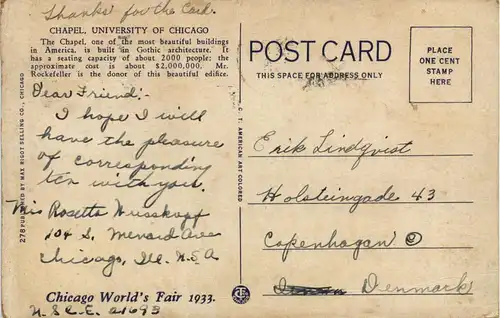 Thanks for the Card.
CHAPEL, UNIVERSITY OF CHICAGO
The Chapel, one of the most beautiful buildings
in America, is built in Gothic architecture. It
has a seating capacity of about 2000 people; the
approximate cost is about $2,000,000. Mr.
Rockefeller is the donor of this beautiful edifice.
Dear Friend:-
I hope I will
have the pleasure
of corresponding
ten with you.
Mis Rosetta
104 S. Menard Ave
Chicago, Ill. U.S.A
Chicago World's Fair 1933.
U.S.C.E. 21693
278 PUBLISHED BY MAX RIGOT SELLING CO., CHICAGO
C. T. AMERICAN ART COLORED
POST CARD
THIS SPACE FOR ADDRESS ONLY
PLACE
ONE CENT
STAMP
HERE
Erik Lindqvist
Holsteingade 43
Copenhagan
Denmark